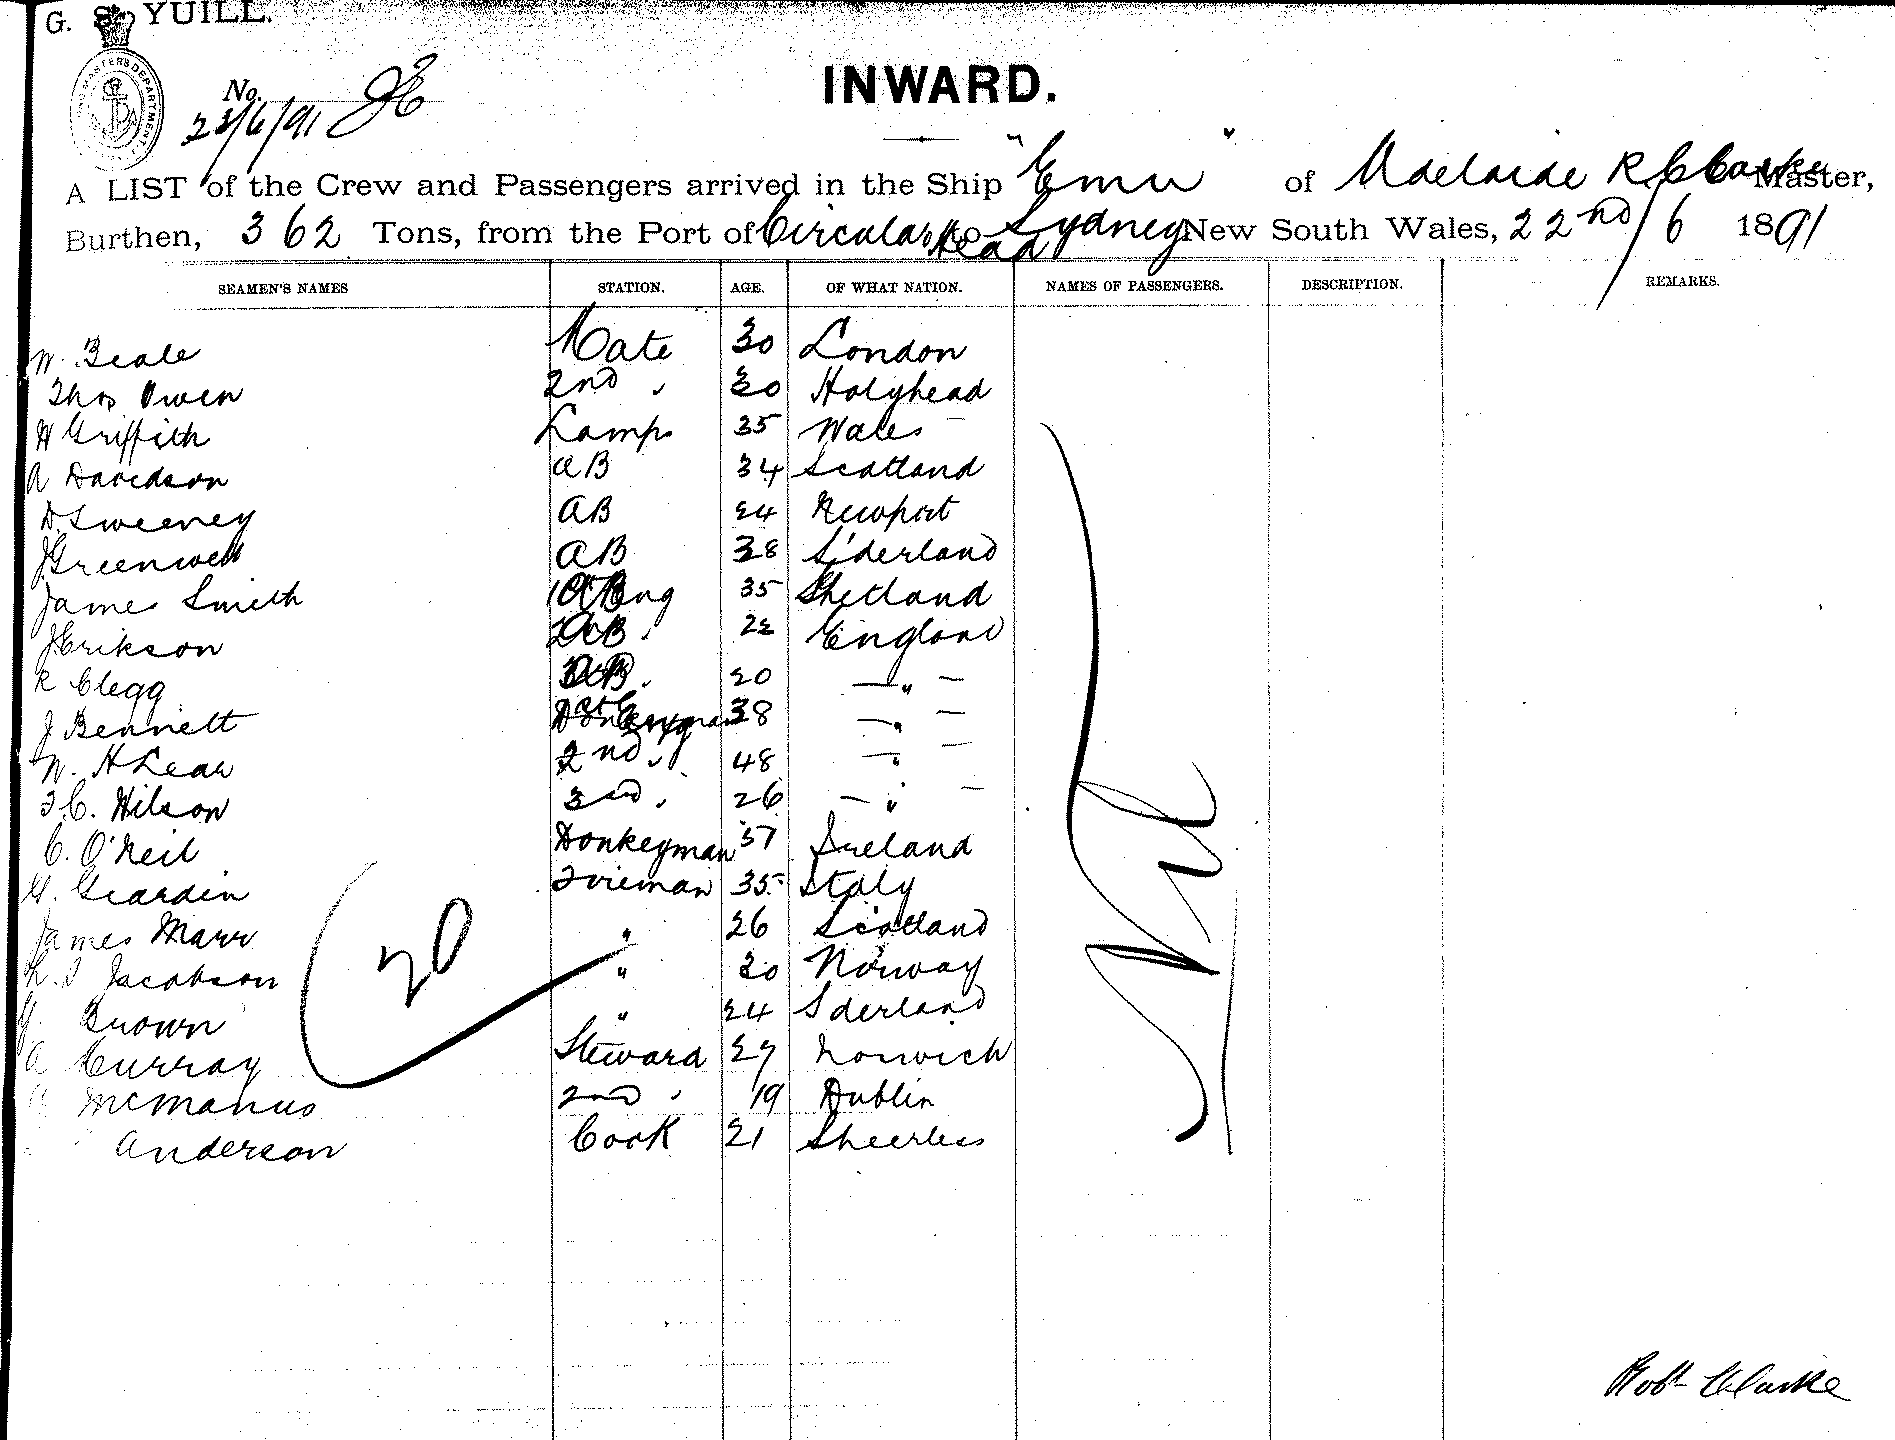 G. S. YUILL.
INWARD.
No.
23/6/91
A LIST of the Crew and Passengers arrived in the Ship "Emu" of Adelaide R Clarke Master,
Burthen, 362 Tons, from the Port of Circular Head to Sydney New South Wales, 22nd/6 1891
SEAMEN'S NAMES STATION. AGE. OF WHAT NATION. NAMES OF PASSENGERS. DESCRIPTION. REMARKS.
W. Beale Mate 30 London
Thos Owen 2nd " 30 Holyhead
H Griffith Lamps 35 Wales
A Davidson AB 34 Scotland
D. Sweeney AB 24 Newport
J Greenwell AB 38 S'derland
James Smith AB 35 Shetland
J Erikson AB 22 England
R Clegg AB 20 — " —
J Bennett 1st Eng 38 — " —
W. H Lear 2nd " 48 — " —
T. C. Wilson 3rd " 26 — " —
C. O'Neil Donkeyman 37 Ireland
G. Giardin Fireman 35 Italy
James Marr " 26 Scotland
Jacobson " 30 Norway
Brown " 24 S'derland
A Currray Steward 27 Norwich
McManus 2nd " 19 Dublin
Anderson Cook 21 Sheerness
20
Nil
Robt Clarke